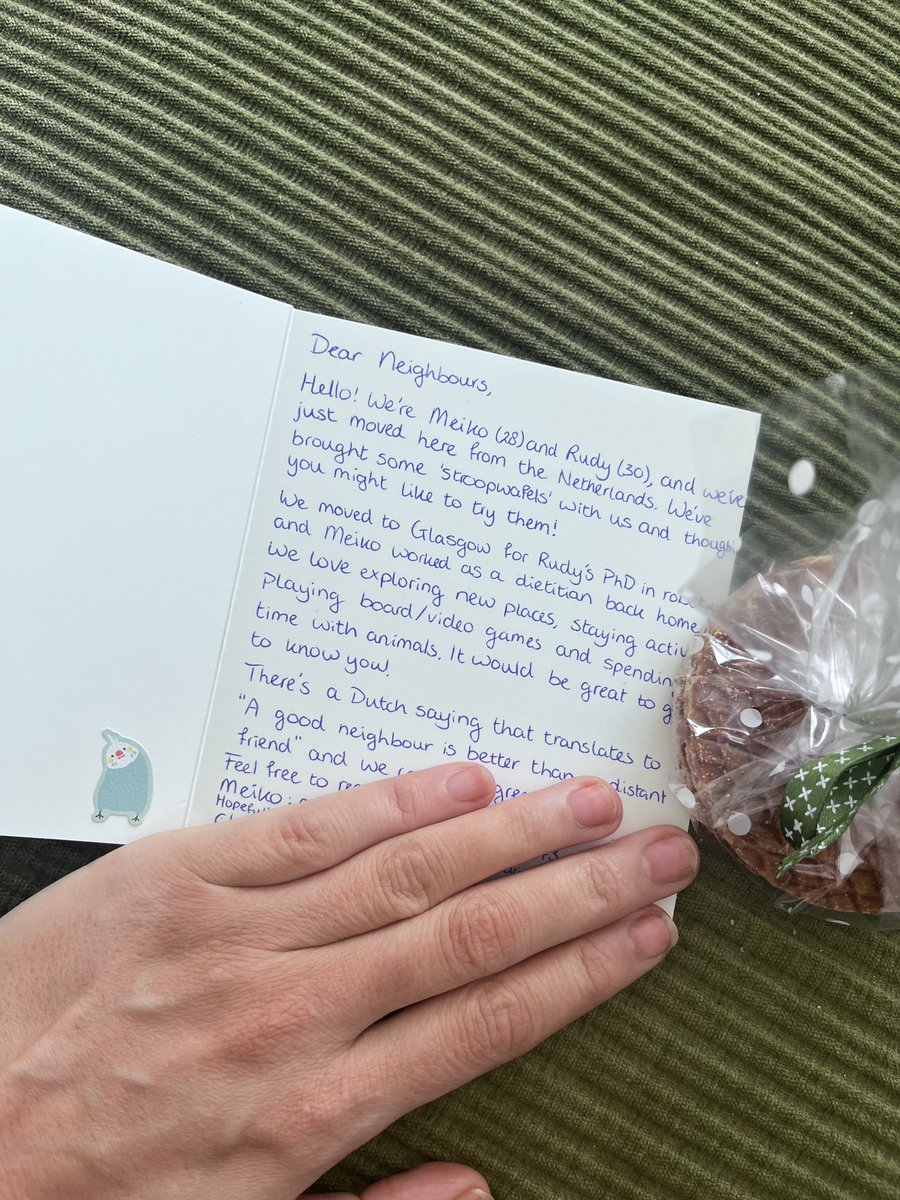 Dear Neighbours,
Hello! We're Meiko (28) and Rudy (30), and we've
just moved here from the Netherlands. We've
brought some 'Stroopwafels' with us and though
you might like to try them!
We moved to Glasgow for Rudy's PhD in
and Meiko worked as a dietitian back home
We love exploring new places, staying activ
playing board/video games and spendin
time with animals. It would be great to g
to know you!
There's a Dutch saying that translates to
"A good neighbour is better than a distant
friend" and we
Feel free to
Meiko: